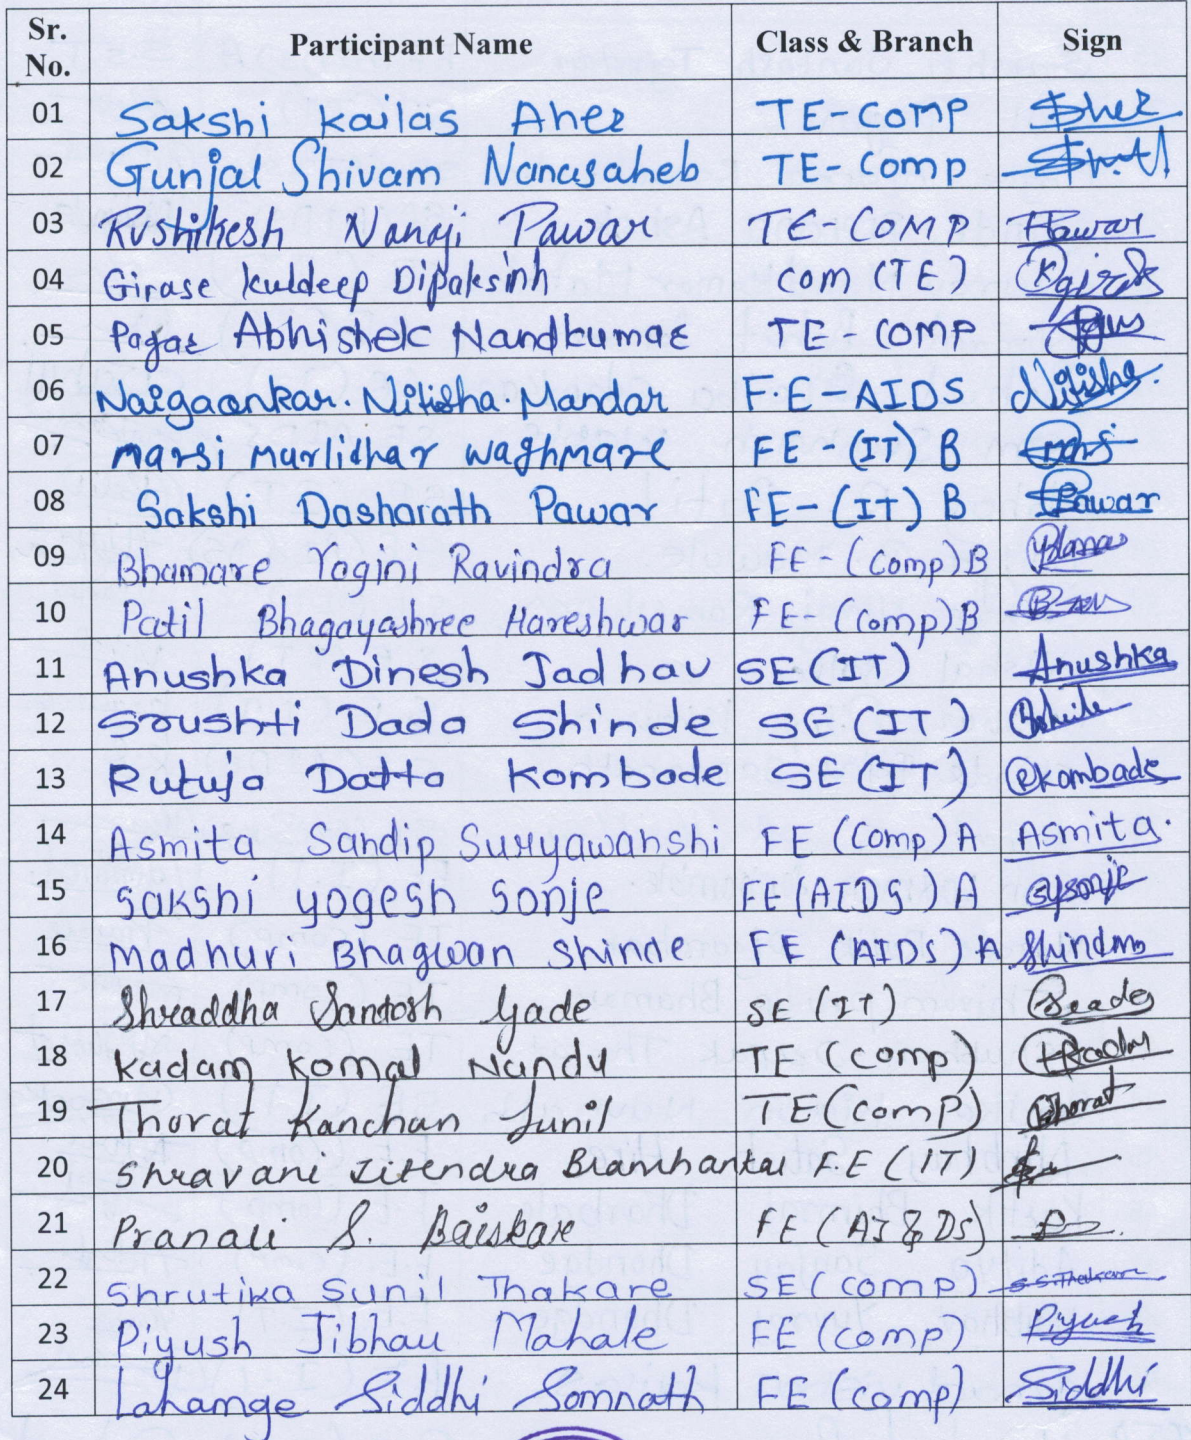 Sr. No. Participant Name Class & Branch Sign
01 Sakshi Kailas Aher TE-COMP Aher
02 Gunjal Shivam Nanasaheb TE-Comp
03 Rushikesh Nanaji Pawar TE-COMP Pawar
04 Girase Kuldeep Dipaksinh com (TE)
05 Pagar Abhishek Nandkumar TE-COMP
06 Naigaonkar. Nitisha. Mandar F.E-AIDS Nitisha.
07 marsi murlidhar waghmare FE-(IT) B
08 Sakshi Dasharath Pawar FE-(IT) B Pawar
09 Bhamare Yogini Ravindra FE-(Comp)B
10 Patil Bhagayashree Hareshwar FE-(Comp)B
11 Anushka Dinesh Jadhav SE(IT) Anushka
12 Srushti Dada Shinde SE(IT)
13 Rutuja Datta Kombade SE(IT) Rkombade
14 Asmita Sandip Suryawanshi FE (Comp) A Asmita.
15 Sakshi yogesh Sonje FE(AIDS) A Sysonje
16 Madhuri Bhagwan Shinde FE (AIDS) A
17 Shraddha Santosh Gade SE (IT)
18 Kadam Komal Nandu TE (comp)
19 Thorat Kanchan Sunil TE(comp) Thorat
20 Shravani Jitendra Bramhankar F.E (IT)
21 Pranali S. Baiskar FE (AI&DS)
22 Shrutika Sunil Thakare SE(comp) S.S.Thakare
23 Piyush Jibhau Mahale FE (comp) Piyush
24 Lahamge Siddhi Somnath FE (comp) Siddhi